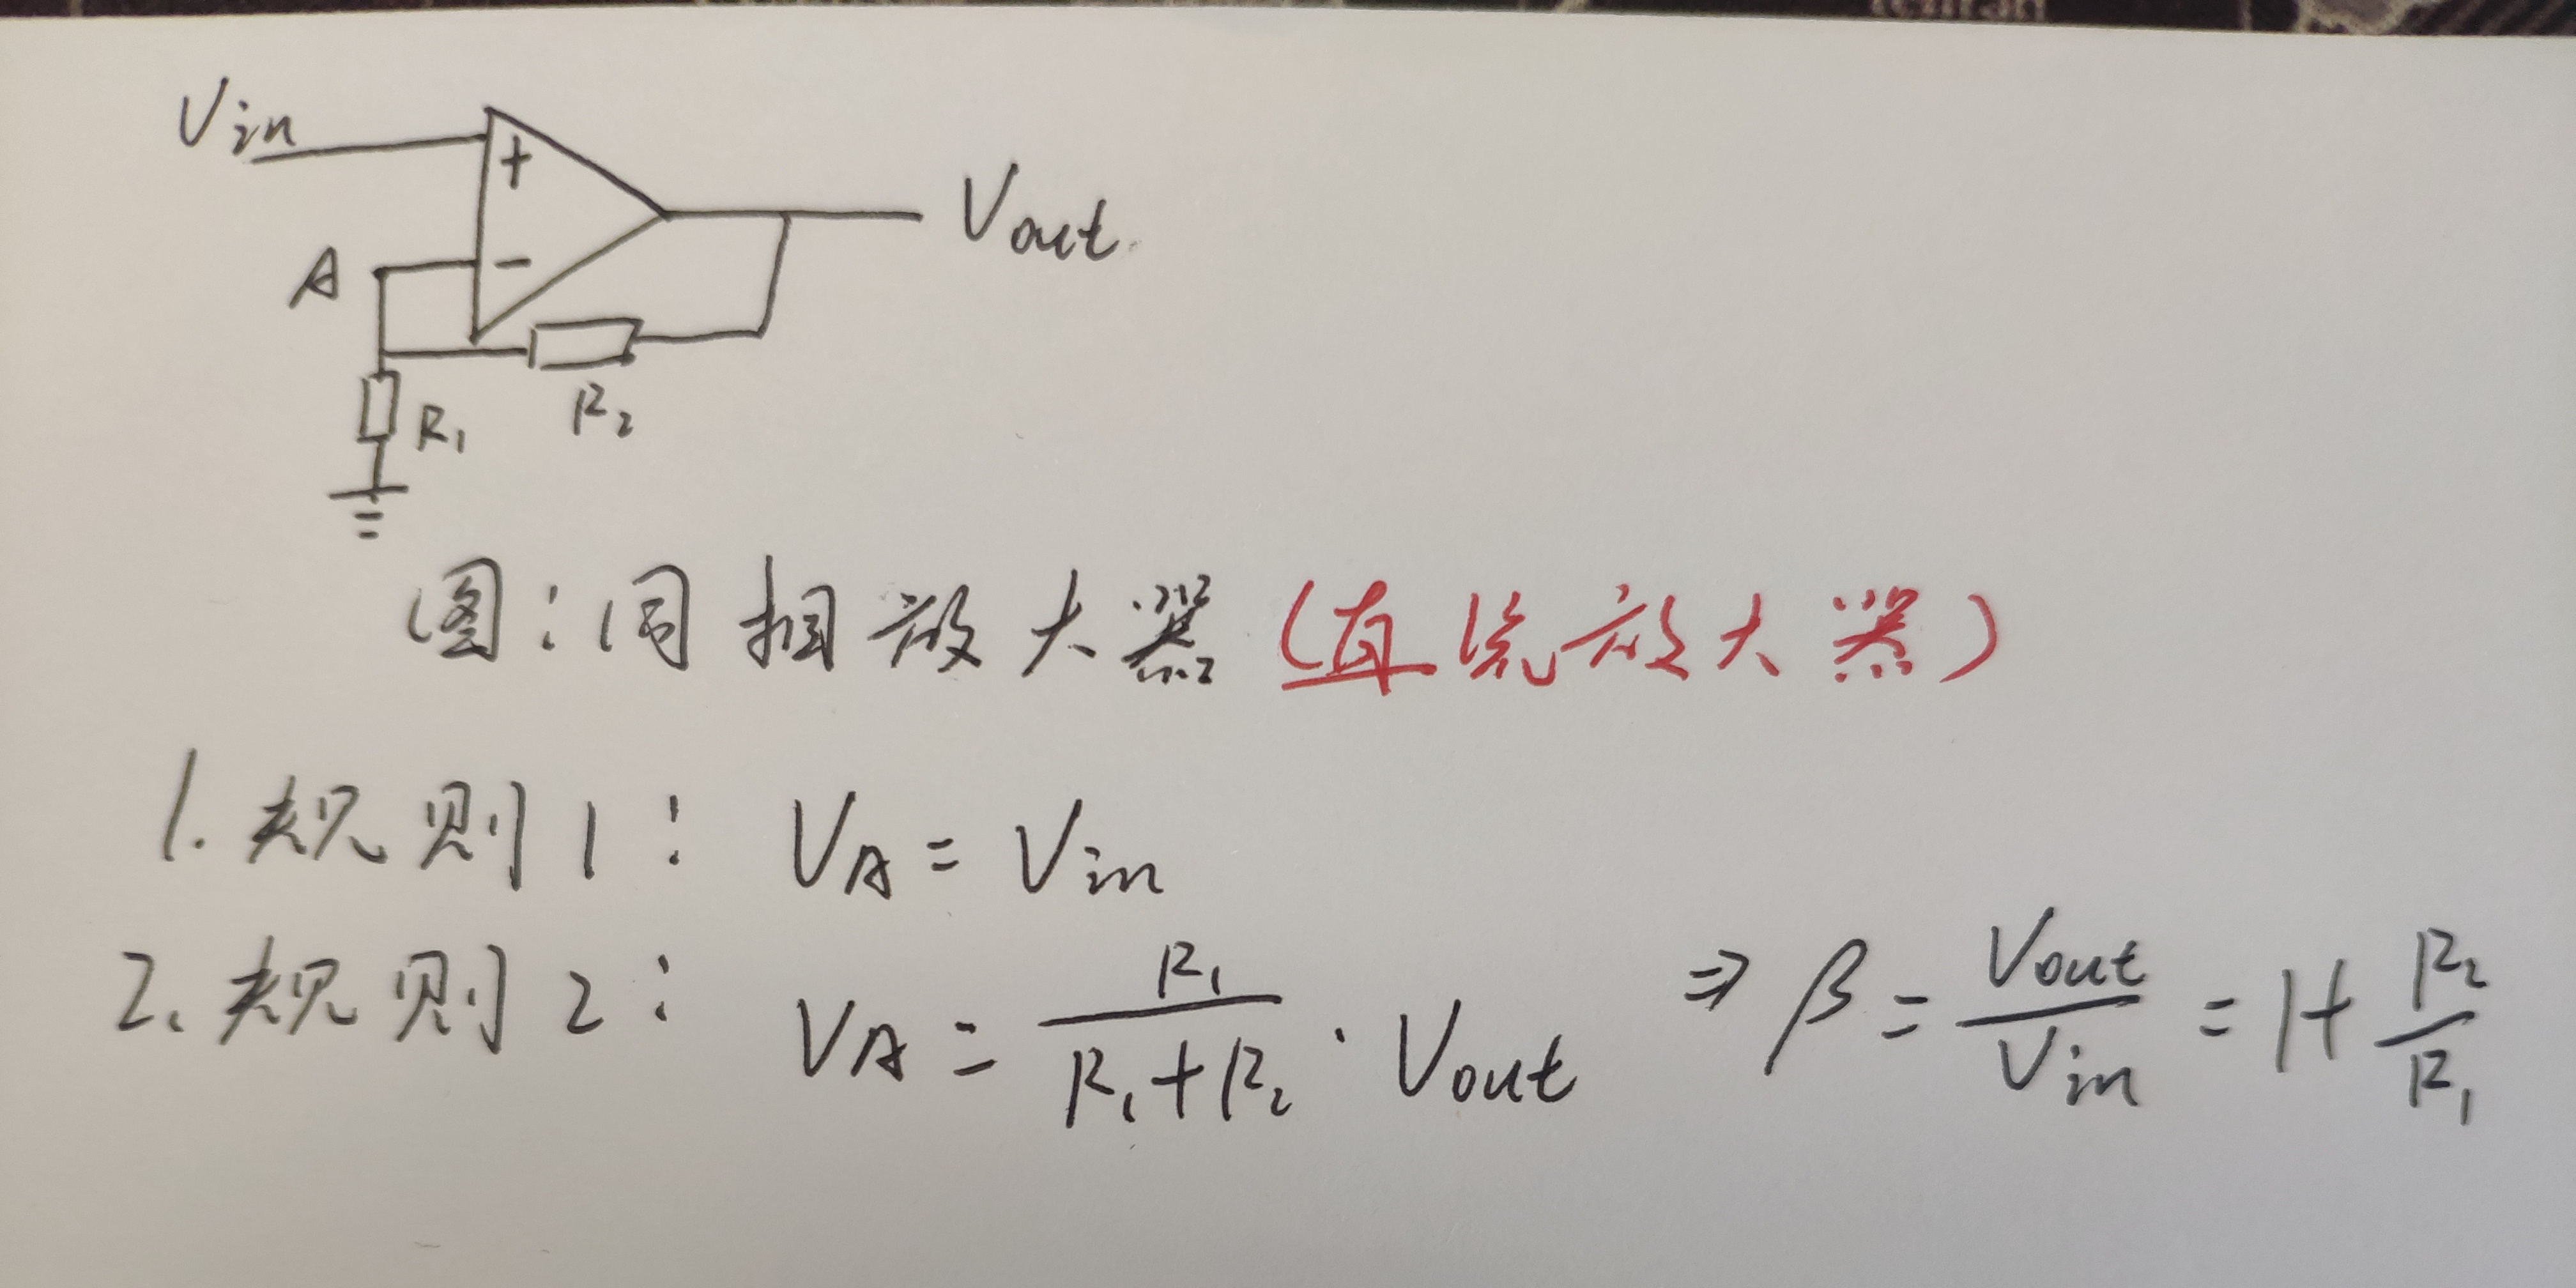 Vin
Vout
A
R₁
R₂
图：同相放大器（直流放大器）
1. 规则1： V_A = Vin
2. 规则2： V_A = R₁/(R₁+R₂) · Vout ⇒ β = Vout/Vin = 1+ R₂/R₁